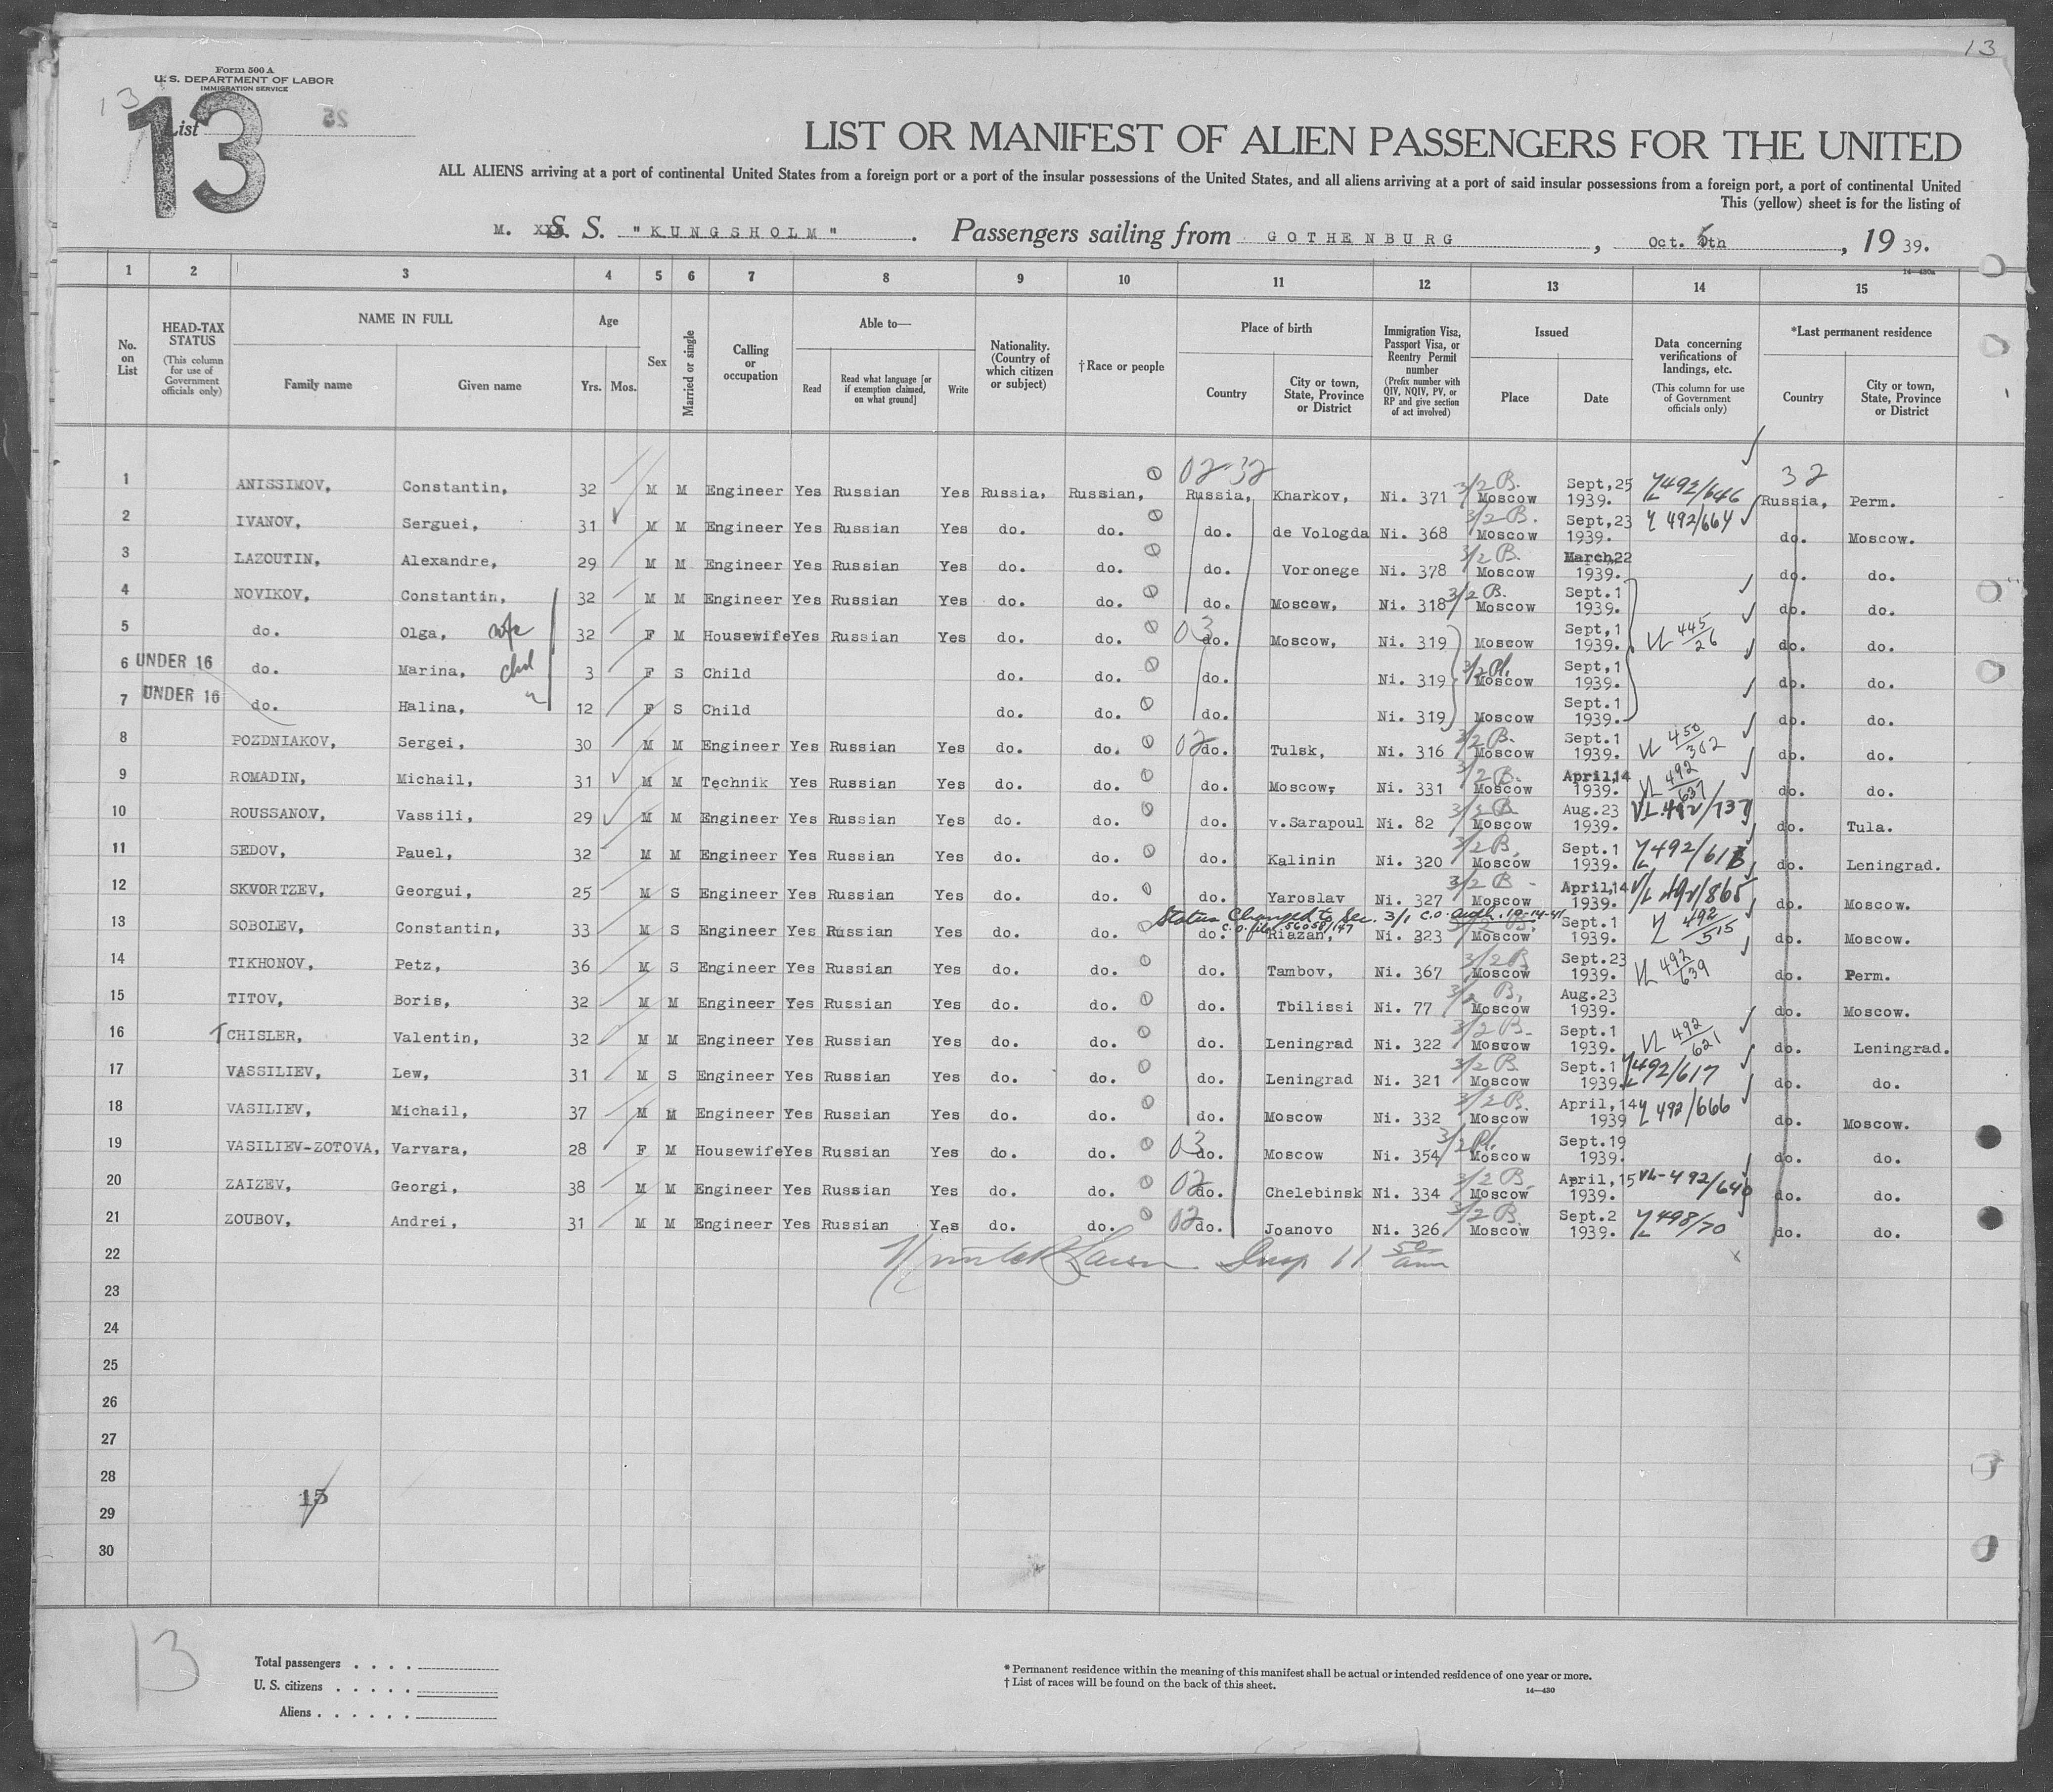 13
Form 500 A
U. S. DEPARTMENT OF LABOR
IMMIGRATION SERVICE
13
List
13
25
LIST OR MANIFEST OF ALIEN PASSENGERS FOR THE UNITED
ALL ALIENS arriving at a port of continental United States from a foreign port or a port of the insular possessions of the United States, and all aliens arriving at a port of said insular possessions from a foreign port, a port of continental United
This (yellow) sheet is for the listing of
M. S. S. "KUNGSHOLM". Passengers sailing from GOTHENBURG, Oct. 5th, 19 39.
14—430a
1 2 3 4 5 6 7 8 9 10 11 12 13 14 15
No. on List HEAD-TAX STATUS (This column for use of Government officials only) NAME IN FULL Family name Given name Age Yrs. Mos. Sex Married or single Calling or occupation Able to— Read Read what language [or if exemption claimed, on what ground] Write Nationality. (Country of which citizen or subject) †Race or people Place of birth Country City or town, State, Province or District Immigration Visa, Passport Visa, or Reentry Permit number (Prefix number with QIV, NQIV, PV, or RP and give section of act involved) Issued Place Date Data concerning verifications of landings, etc. (This column for use of Government officials only) *Last permanent residence Country City or town, State, Province or District
02-32 32
1 ANISSIMOV, Constantin, 32 M M Engineer Yes Russian Yes Russia, Russian, Russia, Kharkov, Ni. 371 3/2 B. Moscow Sept,25 1939. VL 492/646 Russia, Perm.
2 IVANOV, Serguei, 31 M M Engineer Yes Russian Yes do. do. do. de Vologda Ni. 368 3/2 B. Moscow Sept,23 1939. VL 492/664 do. Moscow.
3 LAZOUTIN, Alexandre, 29 M M Engineer Yes Russian Yes do. do. do. Voronege Ni. 378 3/2 B. Moscow March,22 1939. do. do.
4 NOVIKOV, Constantin, 32 M M Engineer Yes Russian Yes do. do. do. Moscow, Ni. 318 3/2 B. Moscow Sept.1 1939. do. do.
5 do. Olga, wife 32 F M Housewife Yes Russian Yes do. do. 03 do. Moscow, Ni. 319 Moscow Sept,1 1939. VL 445/26 do. do.
6 UNDER 16 do. Marina, chd 3 F S Child do. do. do. Ni. 319 3/2 Pl. Moscow Sept,1 1939. do. do.
7 UNDER 16 do. Halina, " 12 F S Child do. do. do. Ni. 319 Moscow Sept.1 1939. do. do.
8 POZDNIAKOV, Sergei, 30 M M Engineer Yes Russian Yes do. do. 02 do. Tulsk, Ni. 316 3/2 B. Moscow Sept.1 1939. VL 450/362 do. do.
9 ROMADIN, Michail, 31 M M Technik Yes Russian Yes do. do. do. Moscow, Ni. 331 3/2 B. Moscow April,14 1939. VL 492/637 do. do.
10 ROUSSANOV, Vassili, 29 M M Engineer Yes Russian Yes do. do. do. v.Sarapoul Ni. 82 3/2 B Moscow Aug.23 1939. VL 492/737 do. Tula.
11 SEDOV, Pauel, 32 M M Engineer Yes Russian Yes do. do. do. Kalinin Ni. 320 3/2 B. Moscow Sept.1 1939. VL 492/618 do. Leningrad.
12 SKVORTZEV, Georgui, 25 M S Engineer Yes Russian Yes do. do. do. Yaroslav Ni. 327 3/2 B - Moscow April,14 1939. V/L 492/865 do. Moscow.
Status Changed to Sec. 3/1 C.O. auth. 10-14-41
C.O. file 56058/147
13 SOBOLEV, Constantin, 33 M S Engineer Yes Russian Yes do. do. do. Riazan, Ni. 323 3/2 B. Moscow Sept.1 1939. VL 492/515 do. Moscow.
14 TIKHONOV, Petz, 36 M S Engineer Yes Russian Yes do. do. do. Tambov, Ni. 367 3/2 B Moscow Sept.23 1939. VL 492/639 do. Perm.
15 TITOV, Boris, 32 M M Engineer Yes Russian Yes do. do. do. Tbilissi Ni. 77 3/2 B, Moscow Aug.23 1939. do. Moscow.
16 TCHISLER, Valentin, 32 M M Engineer Yes Russian Yes do. do. do. Leningrad Ni. 322 3/2 B- Moscow Sept.1 1939. VL 492/621 do. Leningrad.
17 VASSILIEV, Lew, 31 M S Engineer Yes Russian Yes do. do. do. Leningrad Ni. 321 3/2 B. Moscow Sept.1 1939. VL 492/617 do. do.
18 VASILIEV, Michail, 37 M M Engineer Yes Russian Yes do. do. do. Moscow Ni. 332 3/2 B. Moscow April,14 1939 VL 492/666 do. Moscow.
19 VASILIEV-ZOTOVA, Varvara, 28 F M Housewife Yes Russian Yes do. do. 03 do. Moscow Ni. 354 3/2 Pl. Moscow Sept.19 1939. do. do.
20 ZAIZEV, Georgi, 38 M M Engineer Yes Russian Yes do. do. 02 do. Chelebinsk Ni. 334 3/2 B. Moscow April,15 1939. VL-492/640 do. do.
21 ZOUBOV, Andrei, 31 M M Engineer Yes Russian Yes do. do. 02 do. Joanovo Ni. 326 3/2 B. Moscow Sept.2 1939. VL 498/70 do. do.
22 Insp 11 50 am x
23
24
25
26
27
28
15
29
30
13
Total passengers . . . .
U. S. citizens . . . . .
Aliens . . . . . .
* Permanent residence within the meaning of this manifest shall be actual or intended residence of one year or more.
† List of races will be found on the back of this sheet.
14—430